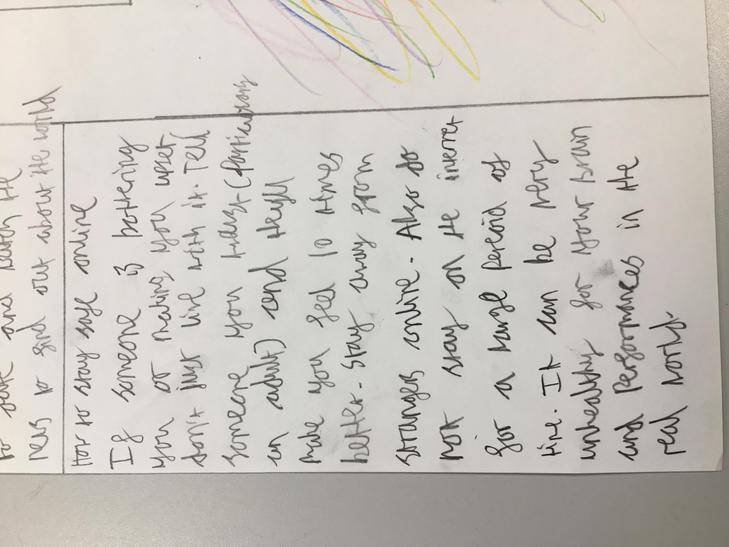 to safe and watch the
news to find out about the world
How to stay safe online
If someone is bothering
you or making you upset
don't just live with it. Tell
someone you trust (particulary
an adult) and they'll
make you feel 10 times
better. Stay away from
strangers online. Also do
not stay on the internet
for a large period of
time. It can be very
unhealthy for your brain
and performances in the
real world.